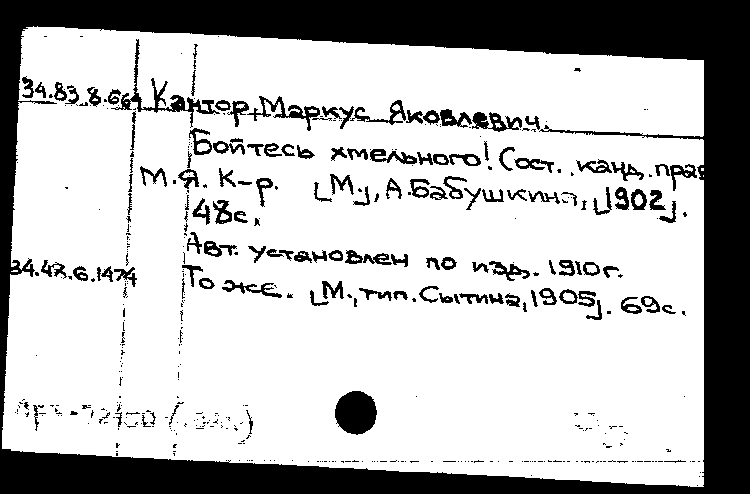 34.83.8.664 Кантор, Маркус Яковлевич.
Бойтесь хмельного! Сост. канд. прав
М.Я. К-р. [М.], А. Бабушкина, [1902].
48с.
Авт. установлен по изд. 1910г.
34.42.6.1474 То же. [М., тип. Сытина, 1905]. 69с.